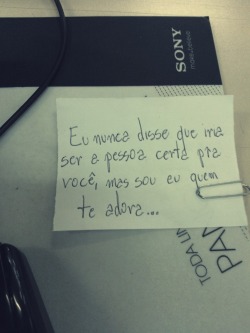 SONY
Eu nunca disse que iria
ser a pessoa certa pra
você, mas sou eu quem
te adora...
TODA LIN
PAR